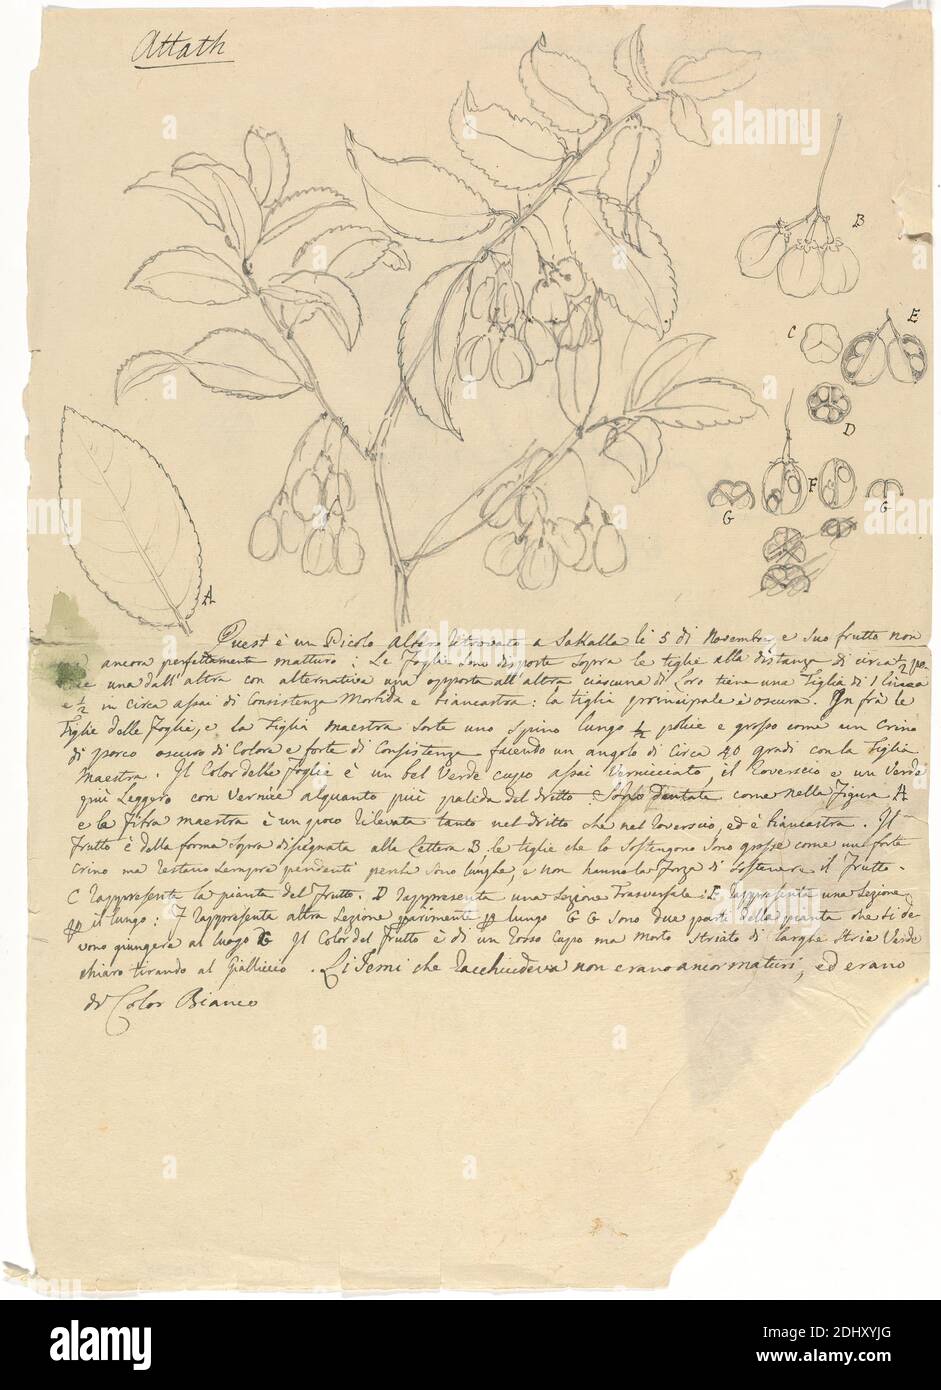 Attath
B
C
E
D
F
G
G
A
Quest è un Picolo Albero ritrovato a Sakalla li 5 di Novembre e suo frutto non
è ancora perfettamente matturo: Le Foglie sono disposte sopra le tiglie alla distanza di circa ½
una dall'altra con alternativa una opposta all'altra ciascuna di Loro tiene una Tiglia di 1 Linea
e ½ in circa assai di Consistenza Morbida e biancastra: la tiglia principale è oscura. In frà le
Tiglie delle Foglie, e la Tiglia maestra sorte uno Spino lungo ½ pollice e grosso come un Crino
di porco oscuro di Colore e forte di Consistenza facendo un angolo di Circa 40 gradi con la Tiglia
Maestra. Il Color delle Foglie è un bel Verde cupo assai Vernicciato, il Roverscio e un Verde
più Leggero con Vernice alquanto più palida del dritto Sono Dantate come nella Figura A
e la Fibra maestra è un poco rilevata tanto nel dritto che nel roverscio, ed è biancastra. Il
frutto è della forma sopra disegnata alla Lettera B. le tiglie che lo Sostengono sono grosse come un forte
Crino ma restano sempre pendenti perchè sono lunghe, e non hanno la Forza di sostenere il Frutto.
C rappresenta la pianta del Frutto. D rappresenta una Sezione Trasversale: E rappresenta una Sezione
il lungo: F rappresenta altra Sezione parimente lungo G G sono due parti della pianta che si de
vono giungere al luogo G Il Color del Frutto è di un rosso Cupo ma Morto Striato di larghe Strie Verde
chiaro tirando al Gialliccio. Li Semi che racchiudeva non erano ancor maturi, ed erano
di Color Bianco
alamy
Image ID: 2DHXYJG
www.alamy.com